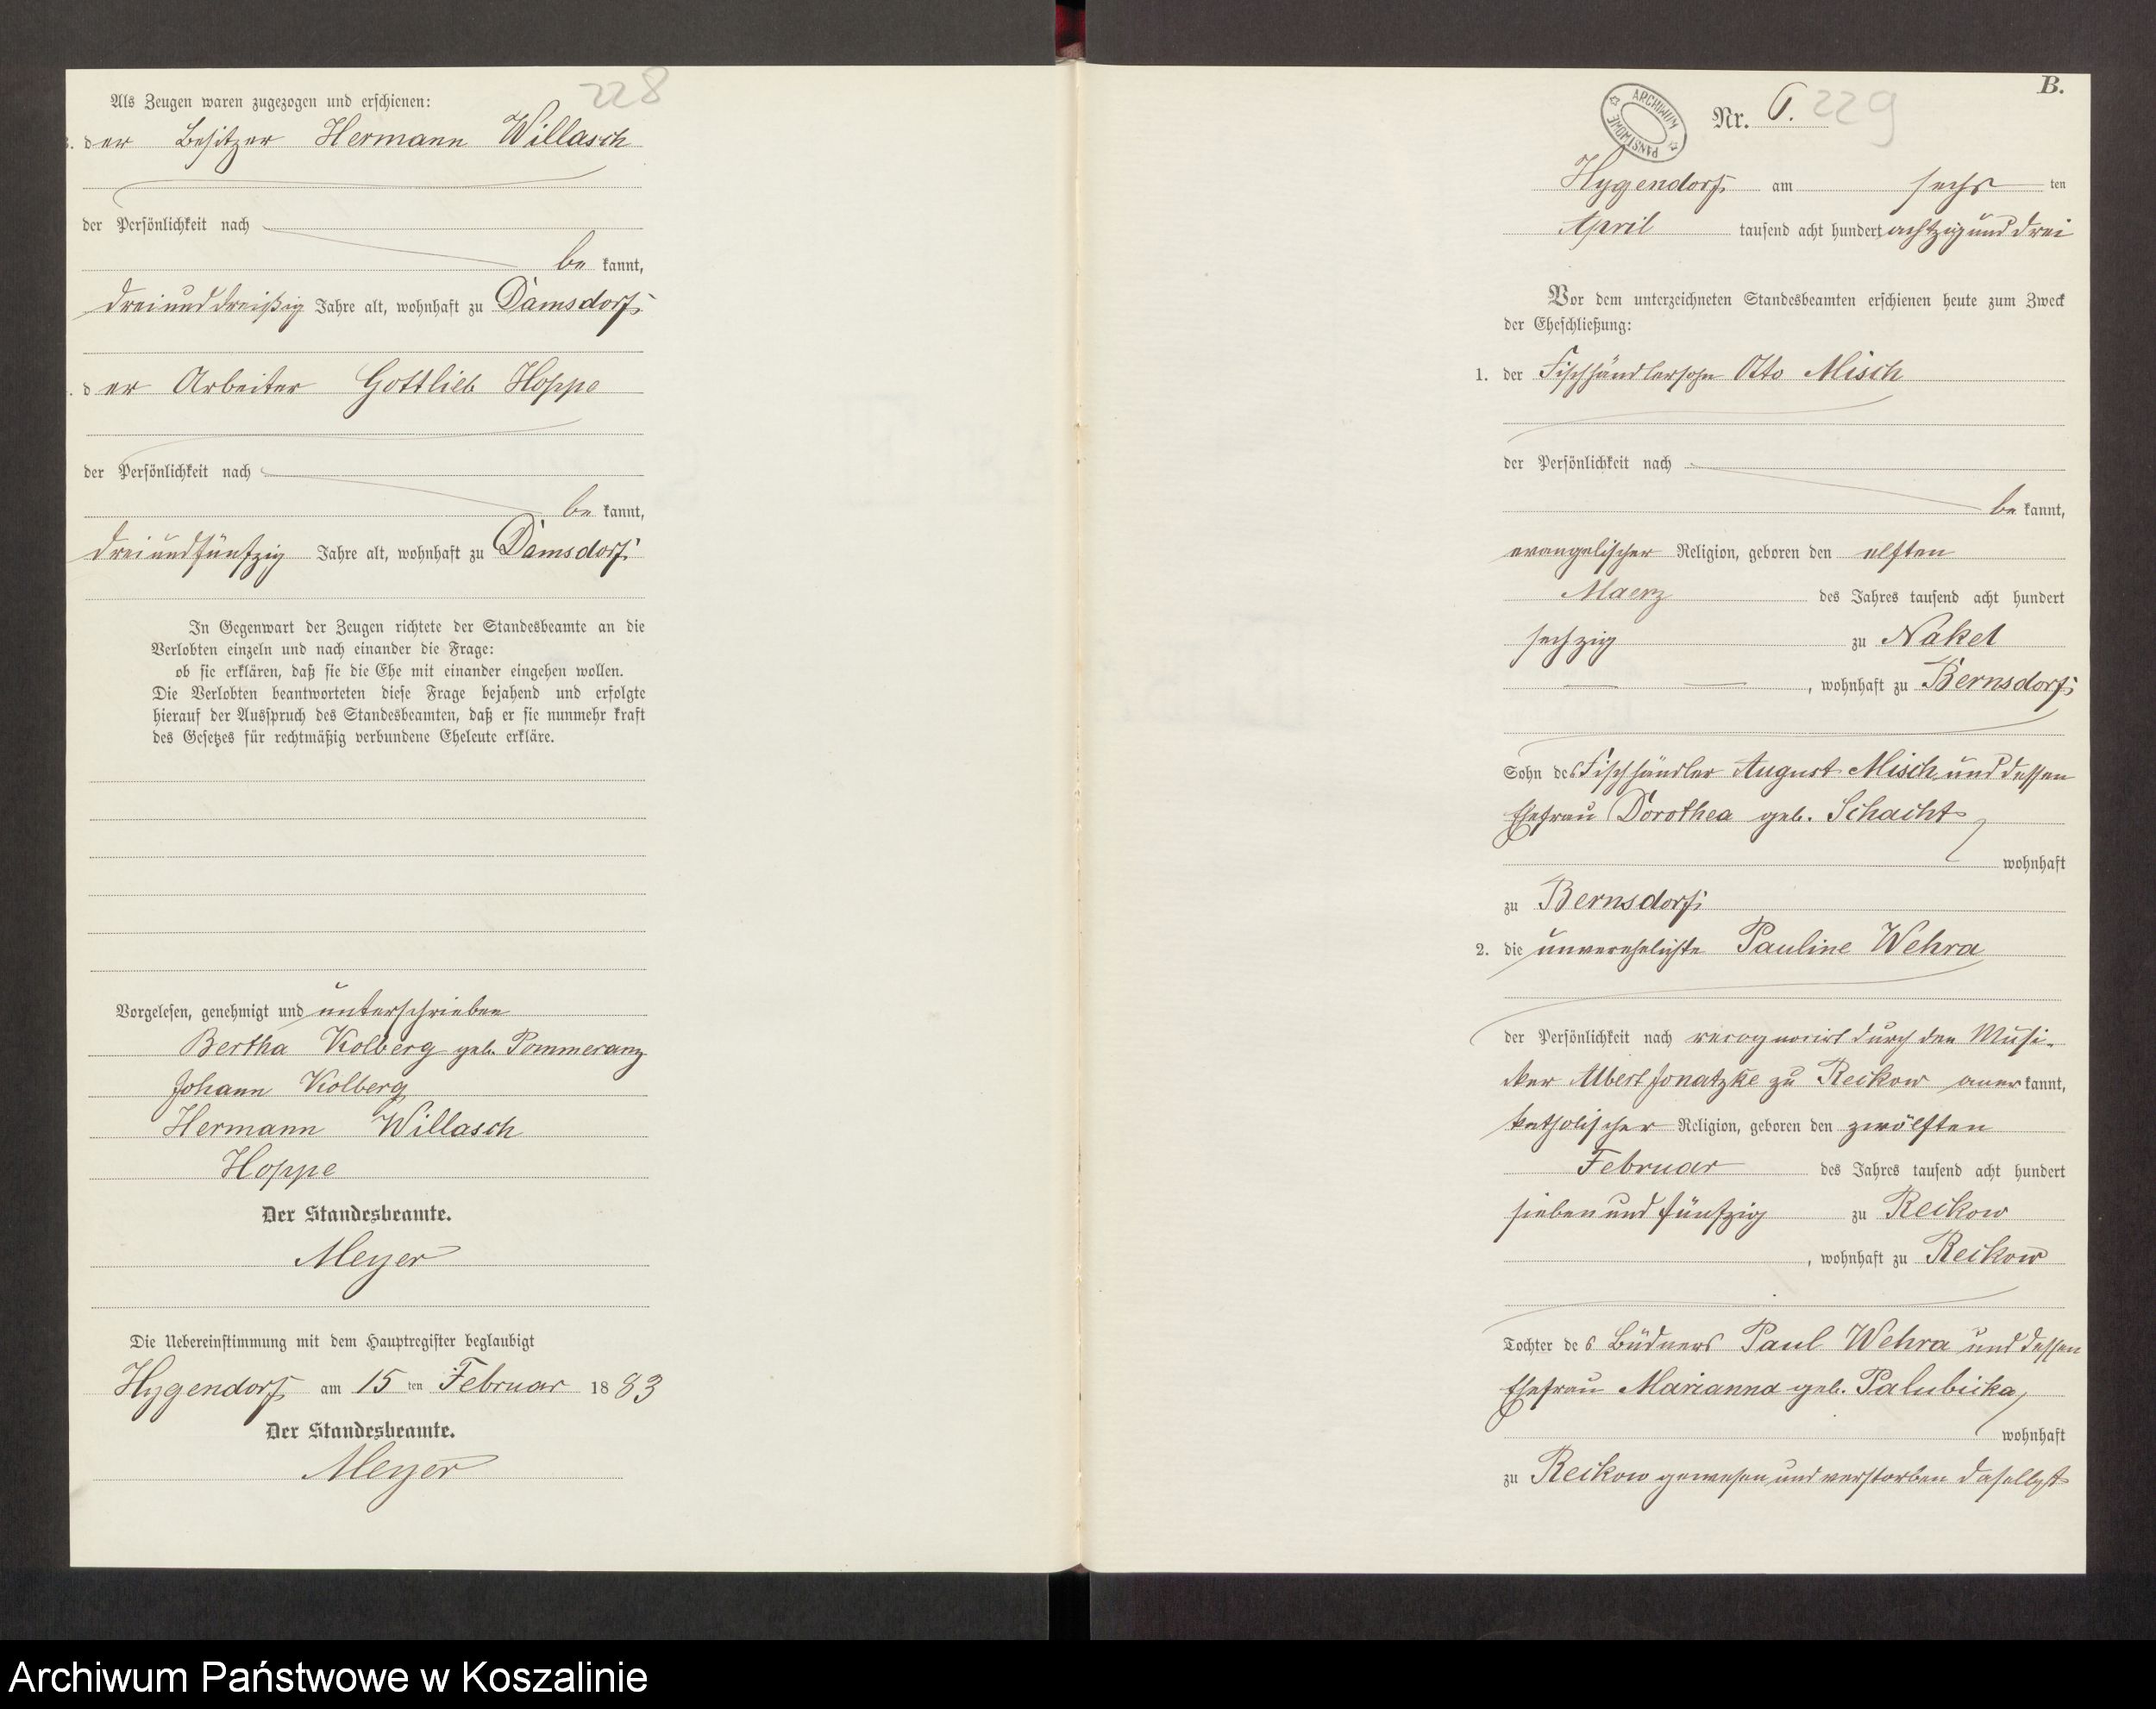 228
Als Zeugen waren zugezogen und erschienen:
3. der Besitzer Hermann Willasch
der Persönlichkeit nach
be kannt,
dreiunddreißig Jahre alt, wohnhaft zu Damsdorf
. der Arbeiter Gottlieb Hoppe
der Persönlichkeit nach
be kannt,
dreiundfünfzig Jahre alt, wohnhaft zu Damsdorf
In Gegenwart der Zeugen richtete der Standesbeamte an die
Verlobten einzeln und nach einander die Frage:
ob sie erklären, daß sie die Ehe mit einander eingehen wollen.
Die Verlobten beantworteten diese Frage bejahend und erfolgte
hierauf der Ausspruch des Standesbeamten, daß er sie nunmehr kraft
des Gesetzes für rechtmäßig verbundene Eheleute erkläre.
Vorgelesen, genehmigt und unterschrieben
Bertha Kolberg geb. Pommeranz
Johann Kolberg
Hermann Willasch
Hoppe
Der Standesbeamte.
Meyer
Die Uebereinstimmung mit dem Hauptregister beglaubigt
Hygendorf am 15 ten Februar 1883
Der Standesbeamte.
Meyer
B.
ARCHIWUM PAŃSTWOWE
Nr. 6. 229
Hygendorf am sechs ten
April tausend acht hundert achtzig und drei
Vor dem unterzeichneten Standesbeamten erschienen heute zum Zweck
der Eheschließung:
1. der Fischhändlersohn Otto Misch
der Persönlichkeit nach
be kannt,
evangelischer Religion, geboren den elften
Maerz des Jahres tausend acht hundert
sechzig zu Nakel
, wohnhaft zu Bernsdorf
Sohn des Fischhändler August Misch und dessen
Ehefrau Dorothea geb. Schacht
wohnhaft
zu Bernsdorf
2. die unverehelichte Pauline Wehra
der Persönlichkeit nach recognocirt durch den Musi-
ker Albert Jonatzke zu Reckow aner kannt,
katholischer Religion, geboren den zwölften
Februar des Jahres tausend acht hundert
sieben und fünfzig zu Reckow
, wohnhaft zu Reckow
Tochter des Büdners Paul Wehra und dessen
Ehefrau Marianna geb. Palubicka,
wohnhaft
zu Reckow gewesen und verstorben daselbst
Archiwum Państwowe w Koszalinie